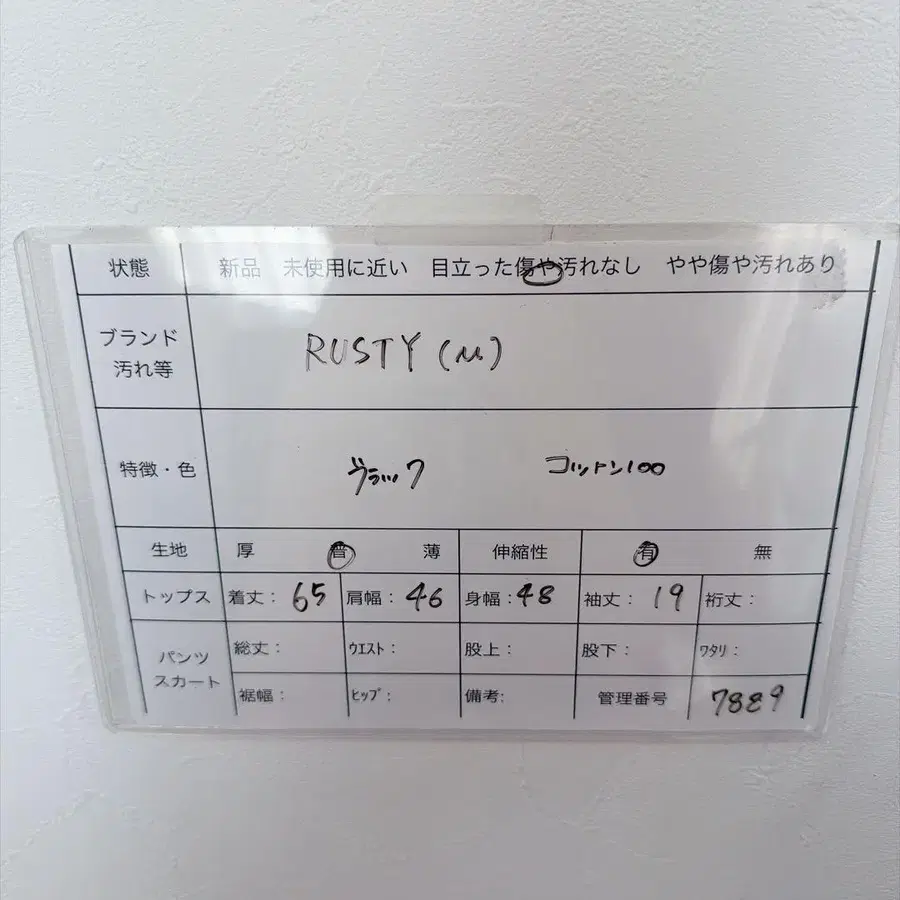 状態 新品 未使用に近い 目立った傷や汚れなし やや傷や汚れあり
ブランド
汚れ等
RUSTY (M)
特徴・色 ブラック コットン100
生地 厚 普 薄 伸縮性 有 無
トップス 着丈: 65 肩幅: 46 身幅: 48 袖丈: 19 裄丈:
パンツ
スカート
総丈: ウエスト: 股上: 股下: ワタリ:
裾幅: ヒップ: 備考: 管理番号 7889